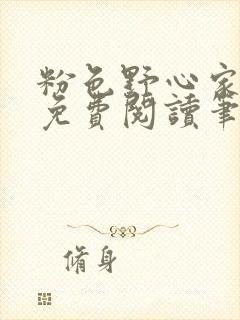 粉色野心家
免費閱讀筆
脩身